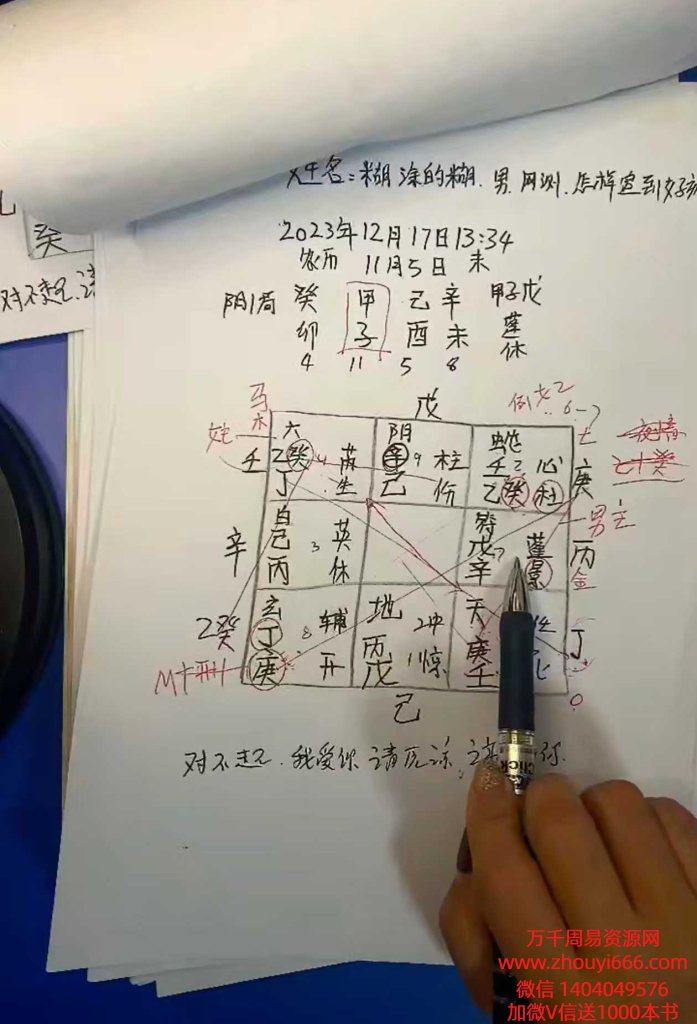 姓名:糊涂的糊.男.网测.怎样追到好孩
2023年12月17日13:34
农历 11月5日 未
阴1局 癸 甲 己 辛 甲子戊
卯 子 酉 未 蓬
4 11 5 8 休
马 戊 例女2
六 阴 蛇 6-7
壬 乙癸 4 芮 辛 9 柱 壬 2 心 庚
丁 生 己 伤 乙癸 杜
白 符 男主
辛 己 3 英 戊 7 蓬 丙
丙 休 辛 景 金
玄 地 天
乙癸 丁 8 辅 丙 冲 庚 丁
M十刑 庚 开 戊 1惊 壬
己 0
对不起.我爱你.请原谅.
癸
对不起.请
万千周易资源网
www.zhouyi666.com
微信 1404049576
加微V信送1000本书